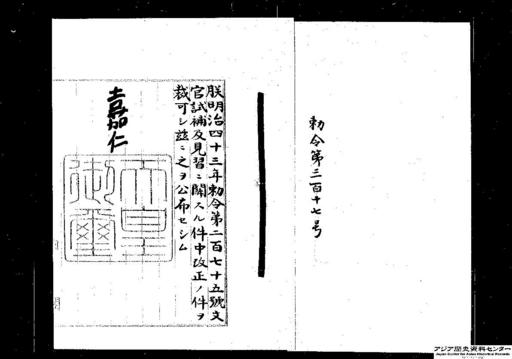 勅令第三百十七号
朕明治四十三年勅令第二百七十五號文
官試補及見習ニ關スル件中改正ノ件ヲ
裁可シ茲ニ之ヲ公布セシム
嘉仁
天皇
御璽
アジア歴史資料センター
Japan Center for Asian Historical Records